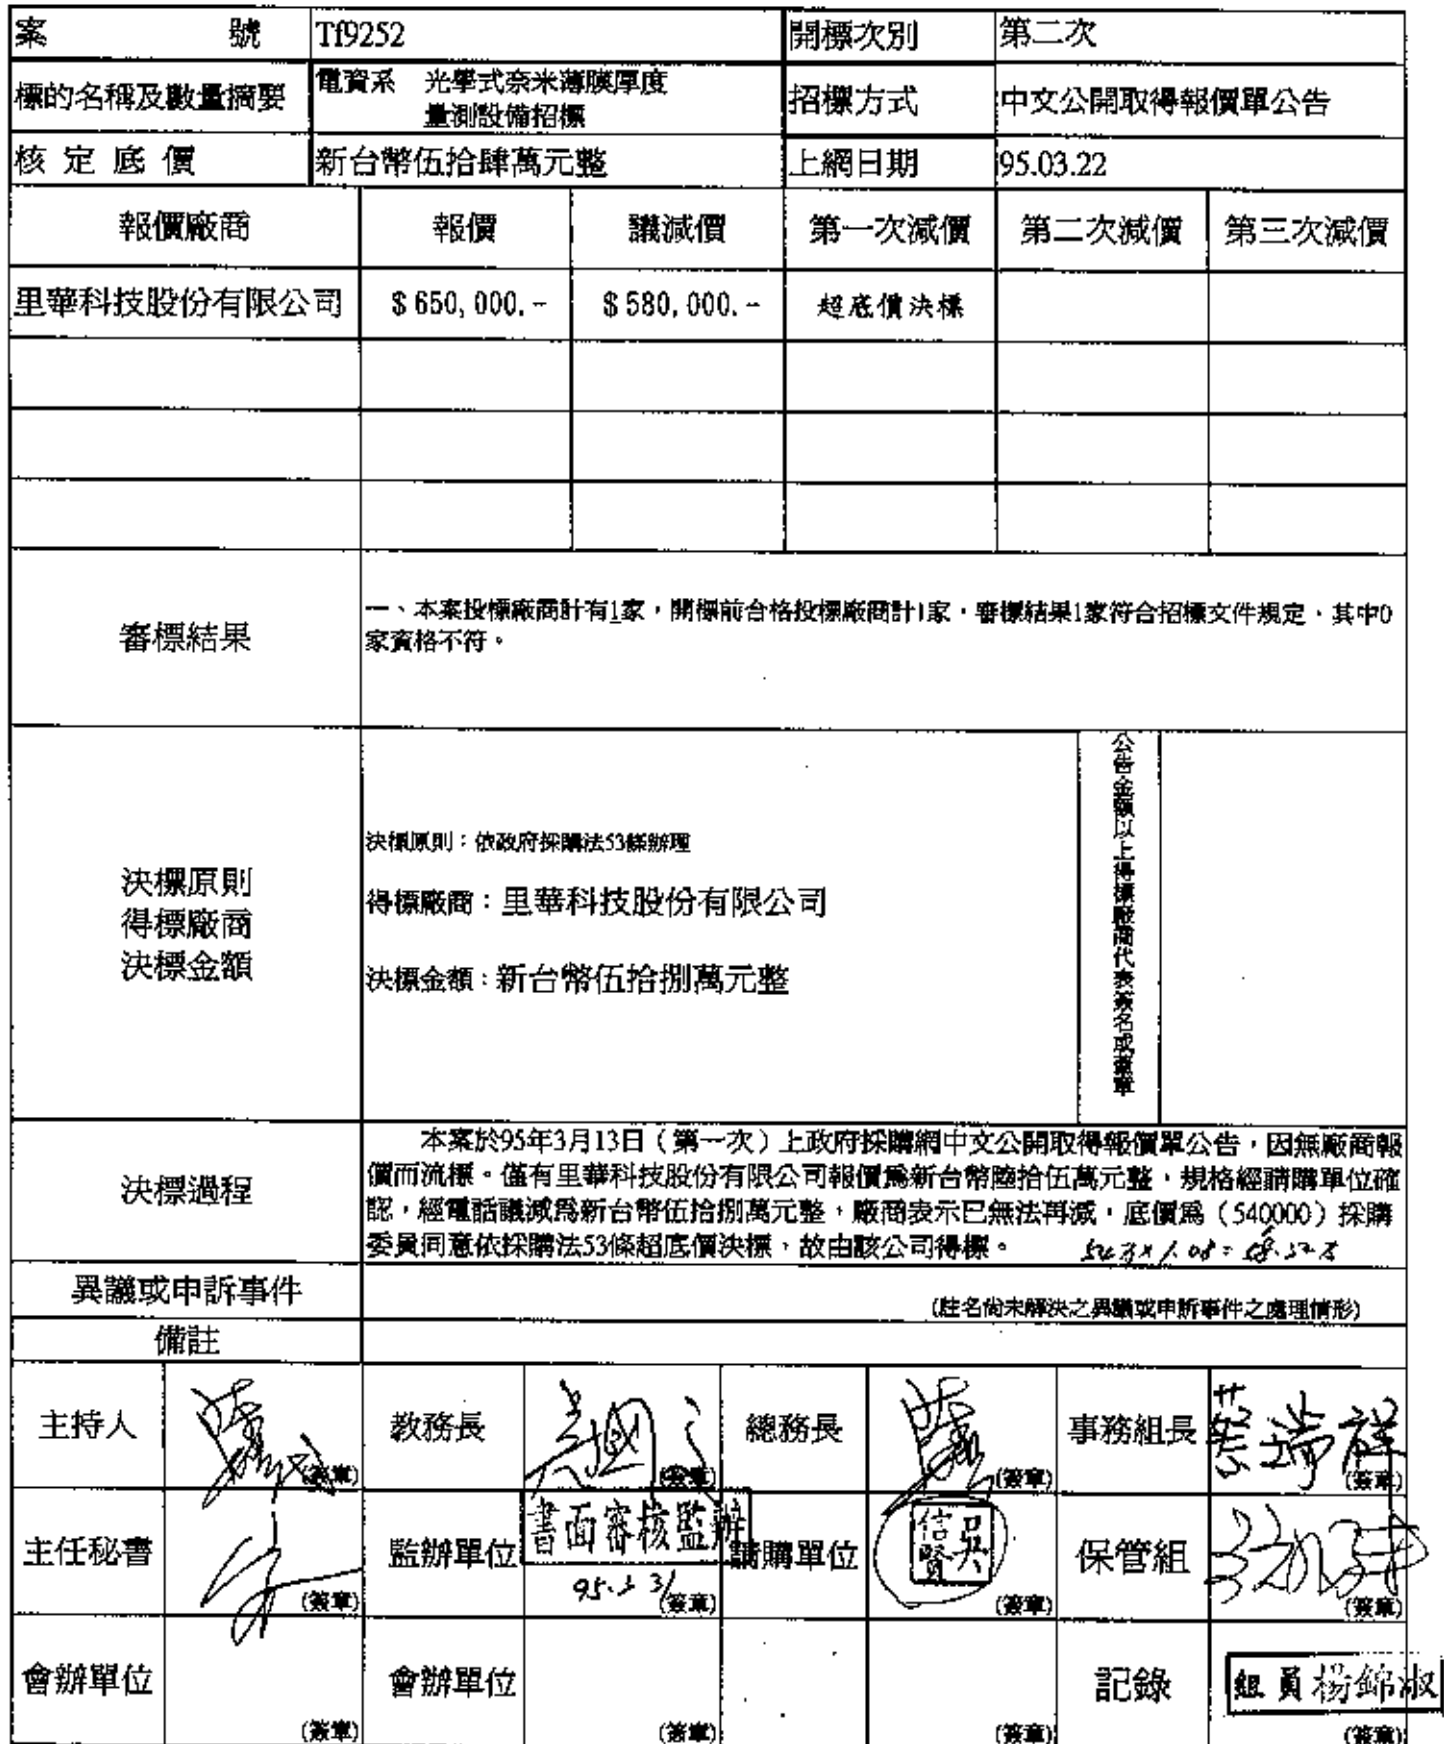 案 號 Tf9252 開標次別 第二次
標的名稱及數量摘要 電資系 光學式奈米薄膜厚度 招標方式 中文公開取得報價單公告
量測設備招標
核定底價 新台幣伍拾肆萬元整 上網日期 95.03.22
報價廠商 報價 議減價 第一次減價 第二次減價 第三次減價
里華科技股份有限公司 $650,000.- $580,000.- 超底價決標
審標結果
一、本案投標廠商計有1家，開標前合格投標廠商計1家，審標結果1家符合招標文件規定，其中0
家資格不符。
決標原則
得標廠商
決標金額
決標原則：依政府採購法53條辦理
得標廠商：里華科技股份有限公司
決標金額：新台幣伍拾捌萬元整
公告金額以上得標廠商代表簽名或蓋章
決標過程
本案於95年3月13日（第一次）上政府採購網中文公開取得報價單公告，因無廠商報
價而流標。僅有里華科技股份有限公司報價為新台幣陸拾伍萬元整，規格經請購單位確
認，經電話議減為新台幣伍拾捌萬元整，廠商表示已無法再減，底價為（540000）採購
委員同意依採購法53條超底價決標，故由該公司得標。
54万×1.08=58.32万
異議或申訴事件 (註名尚未解決之異議或申訴事件之處理情形)
備註
主持人 (簽章) 教務長 (簽章) 總務長 (簽章) 事務組長 蔡瑞祥 (簽章)
主任秘書 (簽章) 監辦單位 書面審核監辦 (簽章) 請購單位 吳信賢 (簽章) 保管組 (簽章)
會辦單位 (簽章) 會辦單位 (簽章) (簽章) 記錄 組員楊錦淑 (簽章)